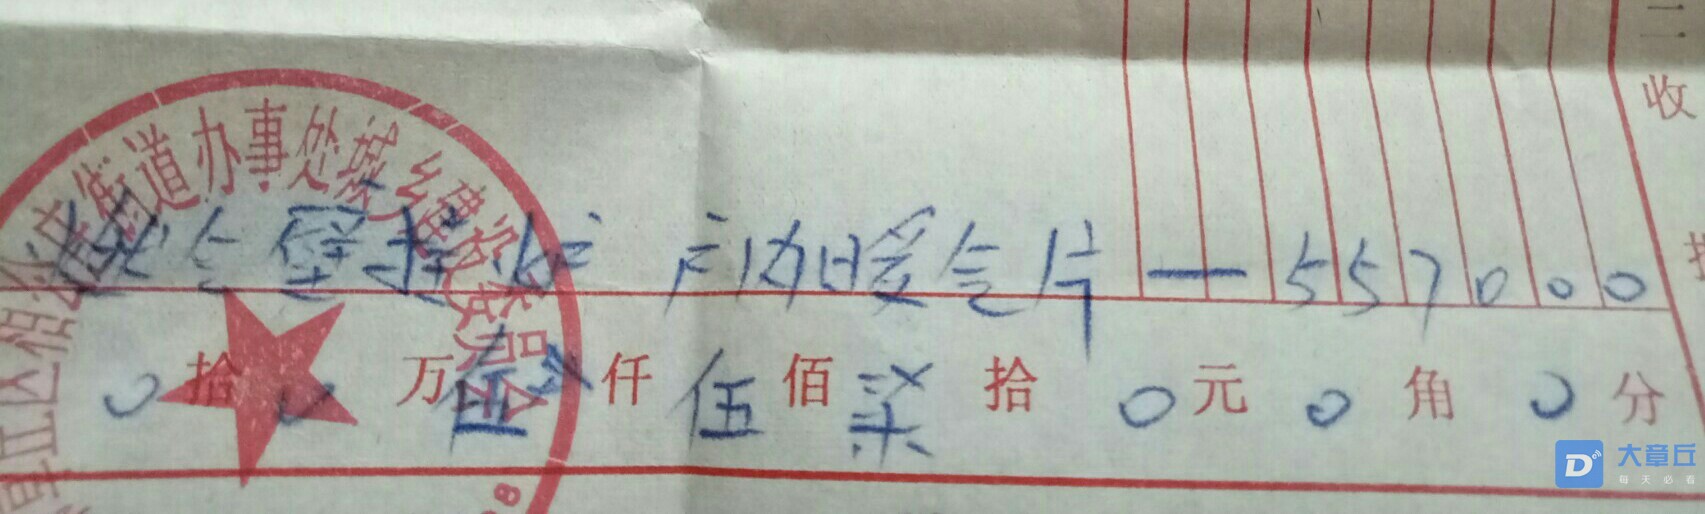 二
收
街道办事处城乡建设委员会
壁挂炉 户内暖气片 — 557000
0拾0万伍仟伍佰柒拾0元0角0分
大章丘
每天必看